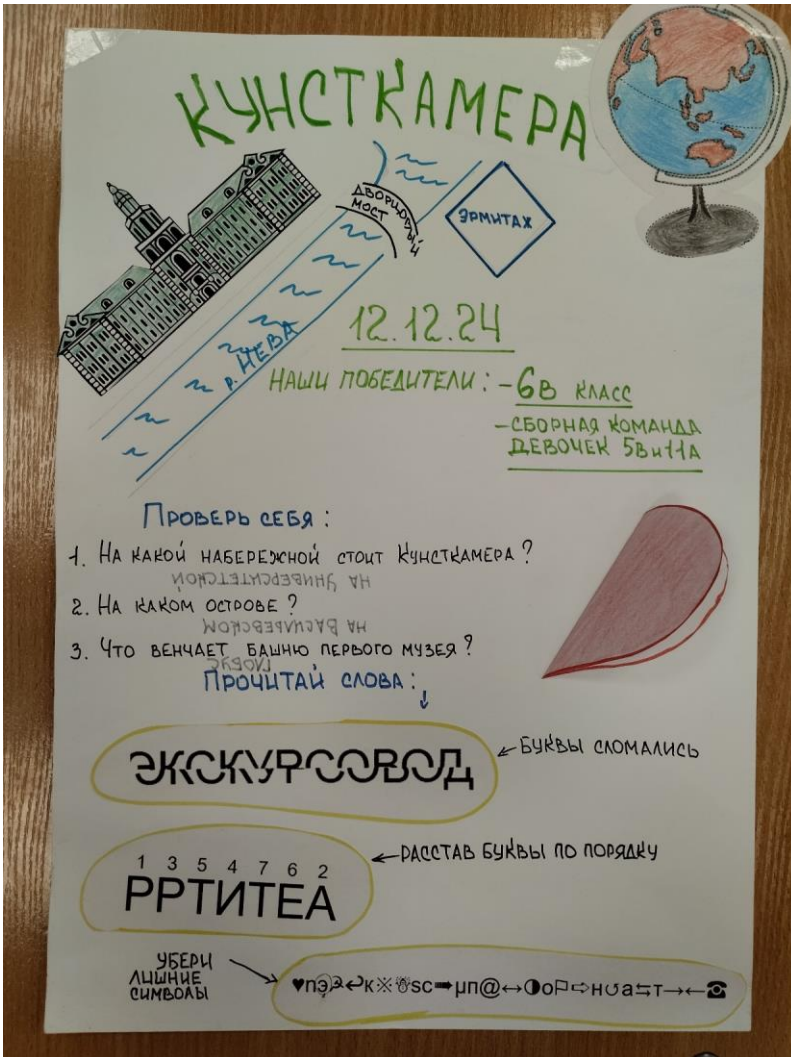 КУНСТКАМЕРА
ДВОРЦОВЫЙ
МОСТ
ЭРМИТАЖ
р. НЕВА
12.12.24
НАШИ ПОБЕДИТЕЛИ: - 6В КЛАСС
- СБОРНАЯ КОМАНДА
ДЕВОЧЕК 5В и 11А
ПРОВЕРЬ СЕБЯ:
1. НА КАКОЙ НАБЕРЕЖНОЙ СТОИТ КУНСТКАМЕРА?
НА УНИВЕРСИТЕТСКОЙ
2. НА КАКОМ ОСТРОВЕ?
НА ВАСИЛЬЕВСКОМ
3. ЧТО ВЕНЧАЕТ БАШНЮ ПЕРВОГО МУЗЕЯ?
ГЛОБУС
ПРОЧИТАЙ СЛОВА:
ЭКСКУРСОВОД
БУКВЫ СЛОМАЛИСЬ
1 3 5 4 7 6 2
РРТИТЕА
РАССТАВ БУКВЫ ПО ПОРЯДКУ
УБЕРИ
ЛИШНИЕ
СИМВОЛЫ
♥nэ↩к※☃sc➡µп@↔◑о⚐⇨н↺а⇆т→←☎